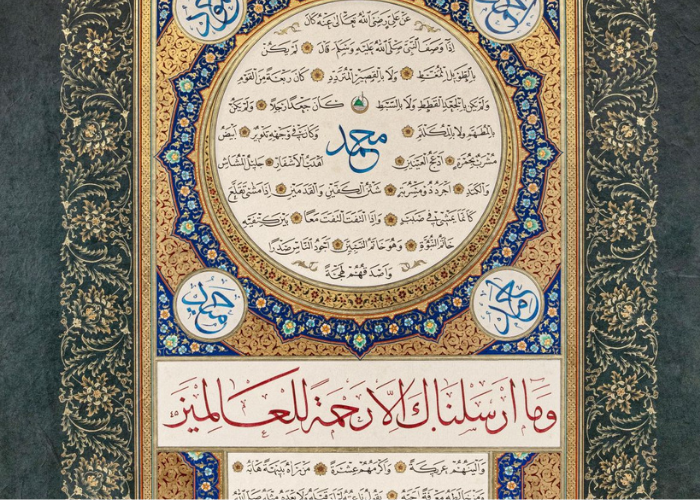 عن علي رضي الله تعالى عنه كان
اذا وصف النبي صلى الله عليه وسلم قال لم يكن
بالطويل الممغط ولا بالقصير المتردد كان ربعة من القوم
ولم يكن بالجعد القطط ولا بالسبط كان جعدا رجلا ولم يكن
بالمطهم ولا بالمكلثم محمد وكان في وجهه تدوير ابيض
مشرب بحمرة ادعج العينين اهدب الاشفار جليل المشاش
والكتد اجرد ذو مسربة شثن الكفين والقدمين اذا مشى تقلع
كانما يمشي في صبب واذا التفت التفت معا بين كتفيه
خاتم النبوة وهو خاتم النبيين اجود الناس صدرا
واصدقهم لهجة
وما ارسلناك الا رحمة للعالمين
والينهم عريكة واكرمهم عشرة من راه بديهة هابه